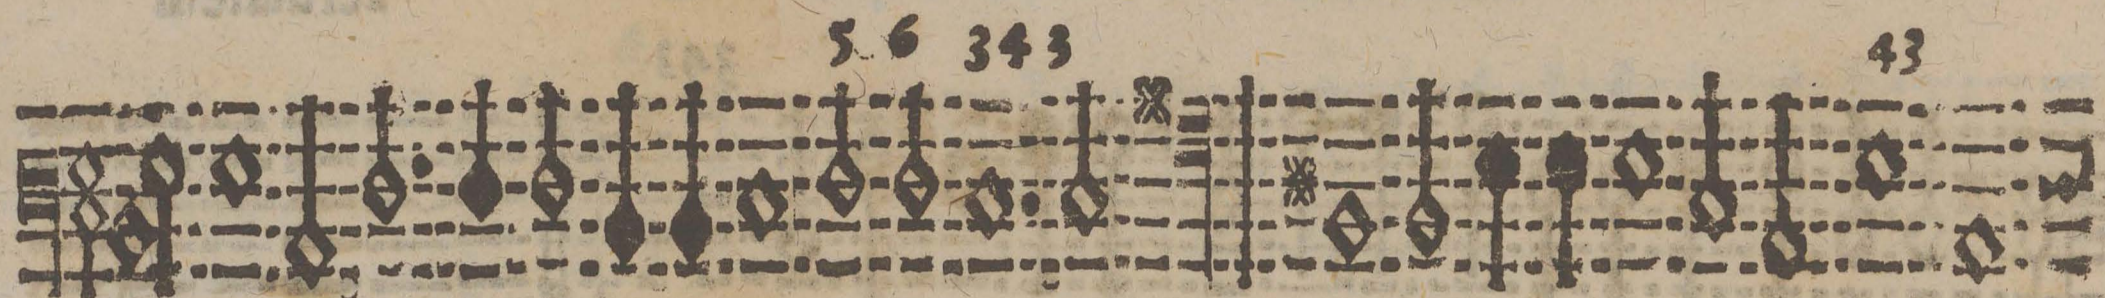 5 6 3 4 3 4 3